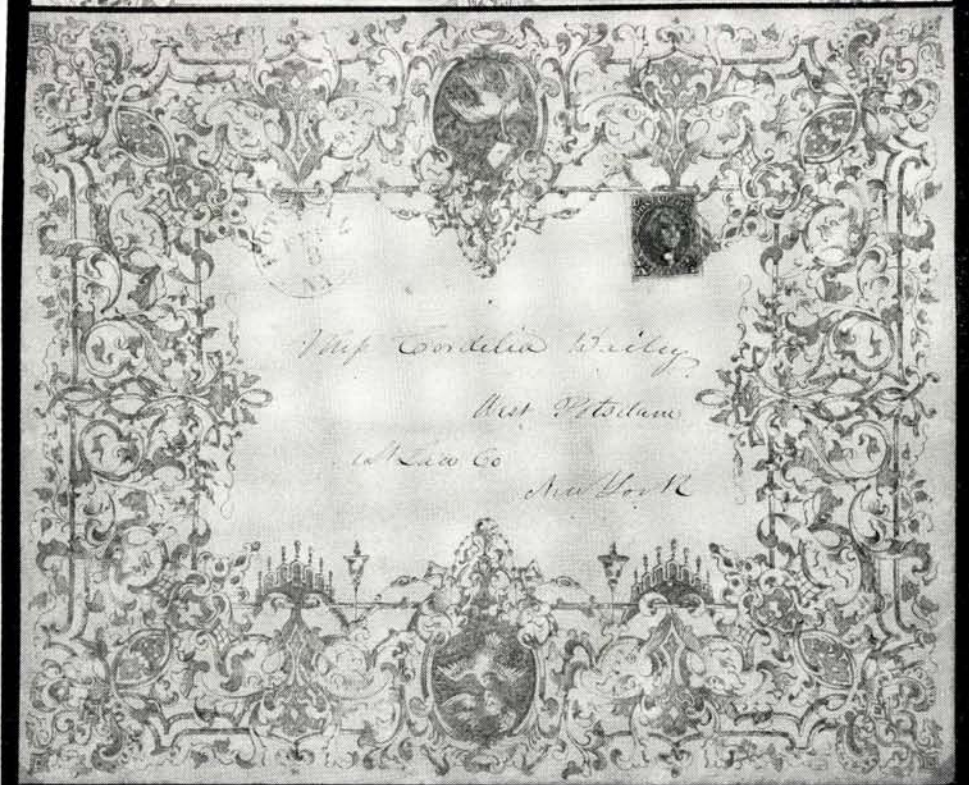 Miss Cordelia Wailey
West Potsdam
St Law Co
New York